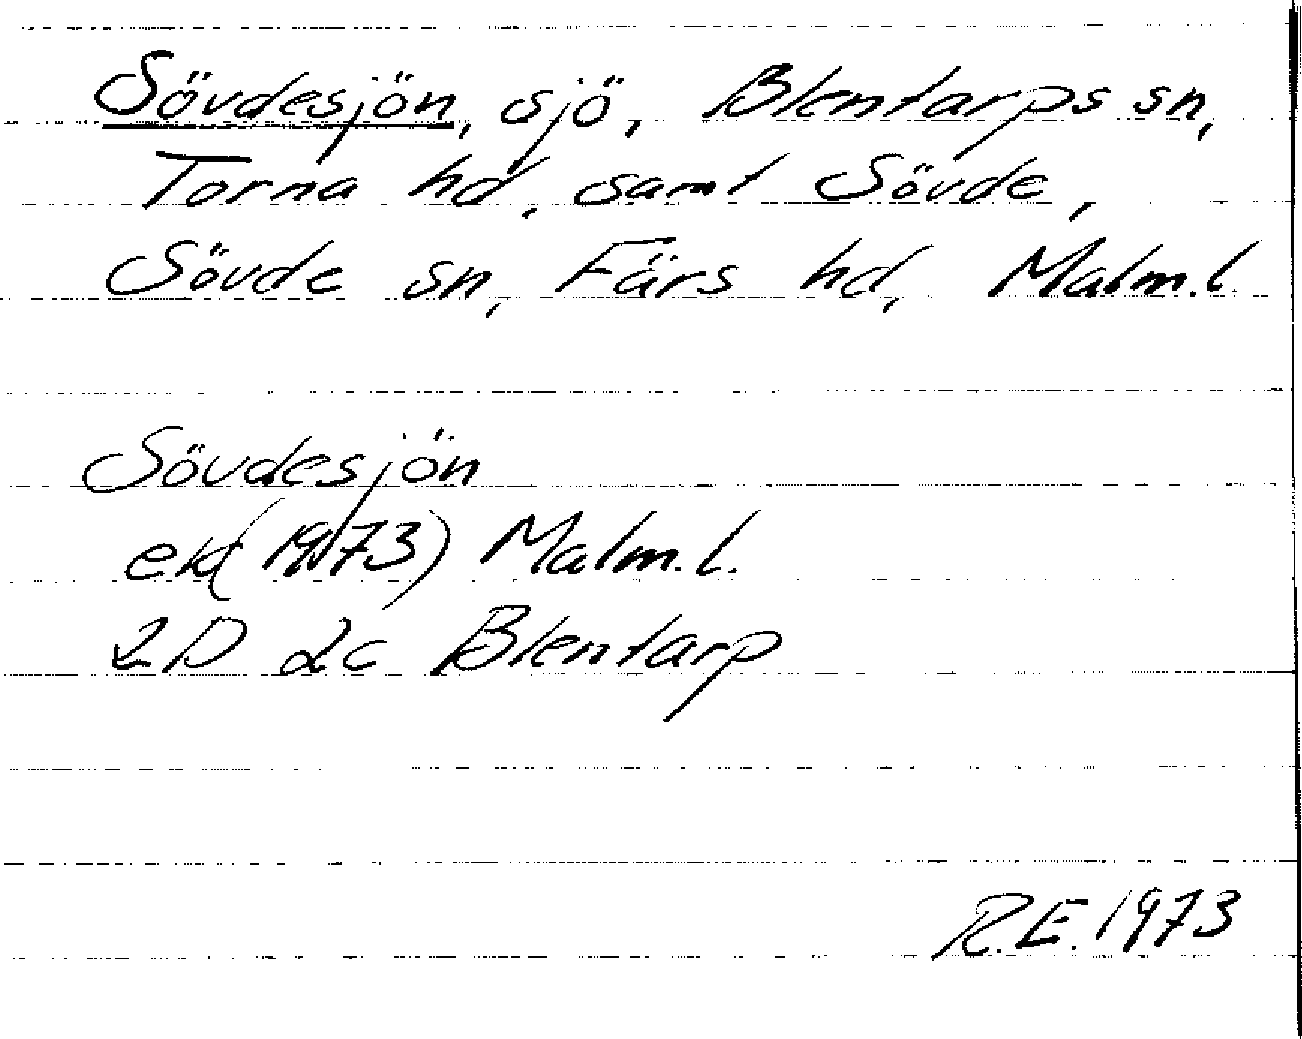 Sövdesjön, sjö, Blentarps sn,
Torna hd, samt Sövde,
Sövde sn, Färs hd, Malm.l.
Sövdesjön
ek (1973) Malm.l.
2D 2c Blentarp
R.E. 1973